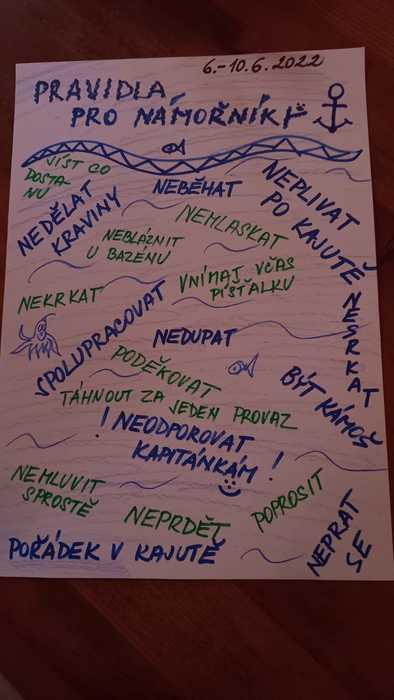 6.-10.6.2022
PRAVIDLA
PRO NÁMOŘNÍKY
JÍST CO
DOSTA-
NU
NEDĚLAT
KRAVINY
NEBĚHAT
NEPLIVAT
PO KAJUTĚ
NEMLASKAT
NEBLÁZNIT
U BAZÉNU
VNÍMAJ VČAS
PÍŠŤALKU
NEKRKAT
NESRKAT
SPOLUPRACOVAT
NEDUPAT
PODĚKOVAT
BÝT KÁMOŠ
TÁHNOUT ZA
JEDEN PROVAZ
! NEODPOROVAT
KAPITÁNKÁM !
NEMLUVIT
SPROSTĚ
NEPRDĚT
POPROSIT
NEPRAT
SE
POŘÁDEK V KAJUTĚ